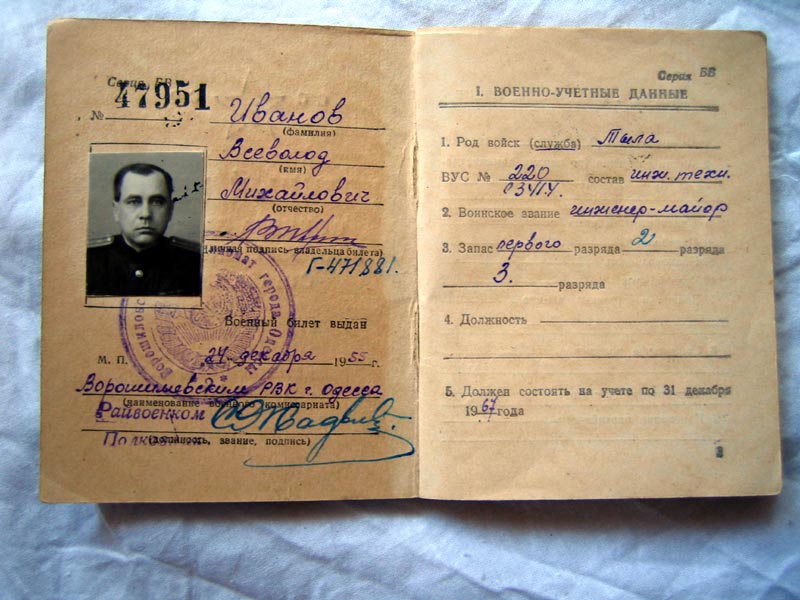 Серия БВ
№ 47951
Иванов
(фамилия)
Всеволод
(имя)
Михайлович
(отчество)
(личная подпись владельца билета)
Г-471881.
города Одессы
Военный билет выдан
М. П. 24 декабря 1955 г.
Ворошиловским РВК г. Одесса
(наименование военного комиссариата)
Райвоенком
(должность, звание, подпись)
Серия БВ
I. ВОЕННО-УЧЕТНЫЕ ДАННЫЕ
1. Род войск (служба) Тыла
ВУС № 220 состав инж. техн.
2. Воинское звание инженер-майор
3. Запас первого разряда 2 разряда
3. разряда
4. Должность
5. Должен состоять на учете по 31 декабря
1967 года